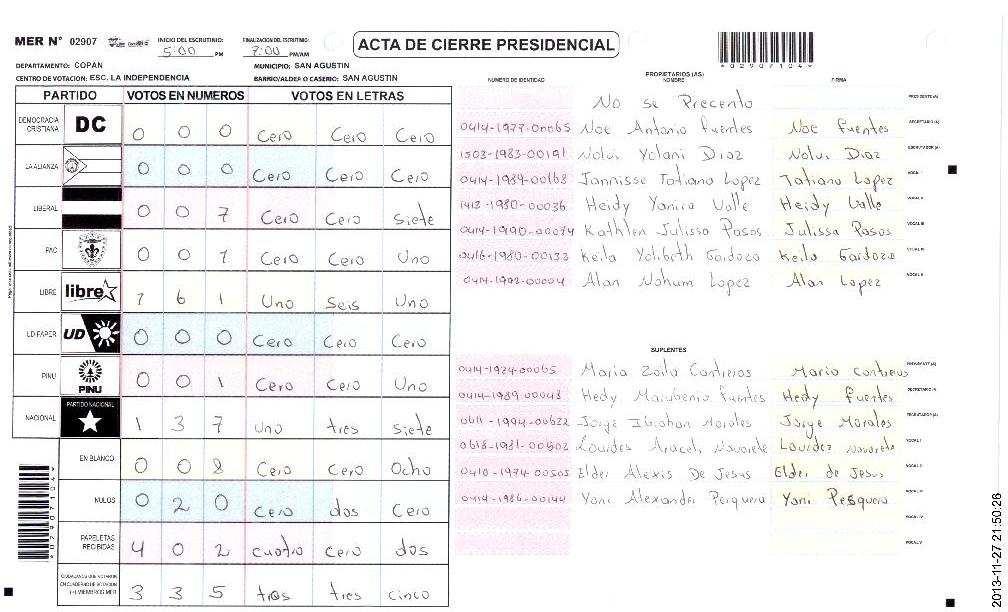 MER N° 02907 INICIO DEL ESCRUTINIO: 5:00 PM FINALIZACION DEL ESCRUTINIO: 7:00 PM/AM
ACTA DE CIERRE PRESIDENCIAL
*02907104*
DEPARTAMENTO: COPAN MUNICIPIO: SAN AGUSTIN
CENTRO DE VOTACION: ESC. LA INDEPENDENCIA BARRIO/ALDEA O CASERIO: SAN AGUSTIN
PARTIDO VOTOS EN NUMEROS VOTOS EN LETRAS
DEMOCRACIA CRISTIANA DC 0 0 0 Cero Cero Cero
LA ALIANZA 0 0 0 Cero Cero Cero
LIBERAL 0 0 7 Cero Cero Siete
PAC 0 0 1 Cero Cero Uno
LIBRE libre 1 6 1 Uno Seis Uno
UD-FAPER UD 0 0 0 Cero Cero Cero
PINU PINU 0 0 1 Cero Cero Uno
NACIONAL PARTIDO NACIONAL 1 3 7 Uno tres siete
EN BLANCO 0 0 8 Cero Cero Ocho
NULOS 0 2 0 Cero dos Cero
PAPELETAS RECIBIDAS 4 0 2 cuatro cero dos
CIUDADANOS QUE VOTARON EN CUADERNO DE VOTACION (+) MIEMBROS MER 3 3 5 tres tres cinco
*02907104*
PROPIETARIOS (AS)
NUMERO DE IDENTIDAD NOMBRE FIRMA
No se Precento PRESIDENTE (A)
0414-1977-00065 Noe Antonio fuentes Noe fuentes SECRETARIO (A)
1503-1983-00191 Nolvi Yolani Diaz Nolvi Diaz ESCRUTADOR (A)
0414-1989-00168 Jannisse Tatiana Lopez Tatiana Lopez VOCAL I
1413-1980-00036 Heidy Yanira Valle Heidy Valle VOCAL II
0414-1990-00074 Kathlen Julissa Posos Julissa Posos VOCAL III
0416-1980-00133 Keila Yolibeth Gardoza Keila Gardoza VOCAL IV
0414-1992-00004 Alan Nahum Lopez Alan Lopez VOCAL V
SUPLENTES
0414-1974-00065 Maria Zoila Contreras Maria Contreras PRESIDENTE (A)
0414-1989-00048 Hedy fuentes Hedy fuentes SECRETARIO (A)
0611-1994-00622 Jorge Morales Jorge Morales ESCRUTADOR (A)
0618-1981-00502 Lourdes Araceli Navarete Lourdez Navarete VOCAL I
0410-1974-00505 Elder Alexis De Jesus Elder de Jesus VOCAL II
0414-1986-00144 Yoni Alexander Perquera Yoni Pesquera VOCAL III
VOCAL IV
VOCAL V
2013-11-27 21:50:26